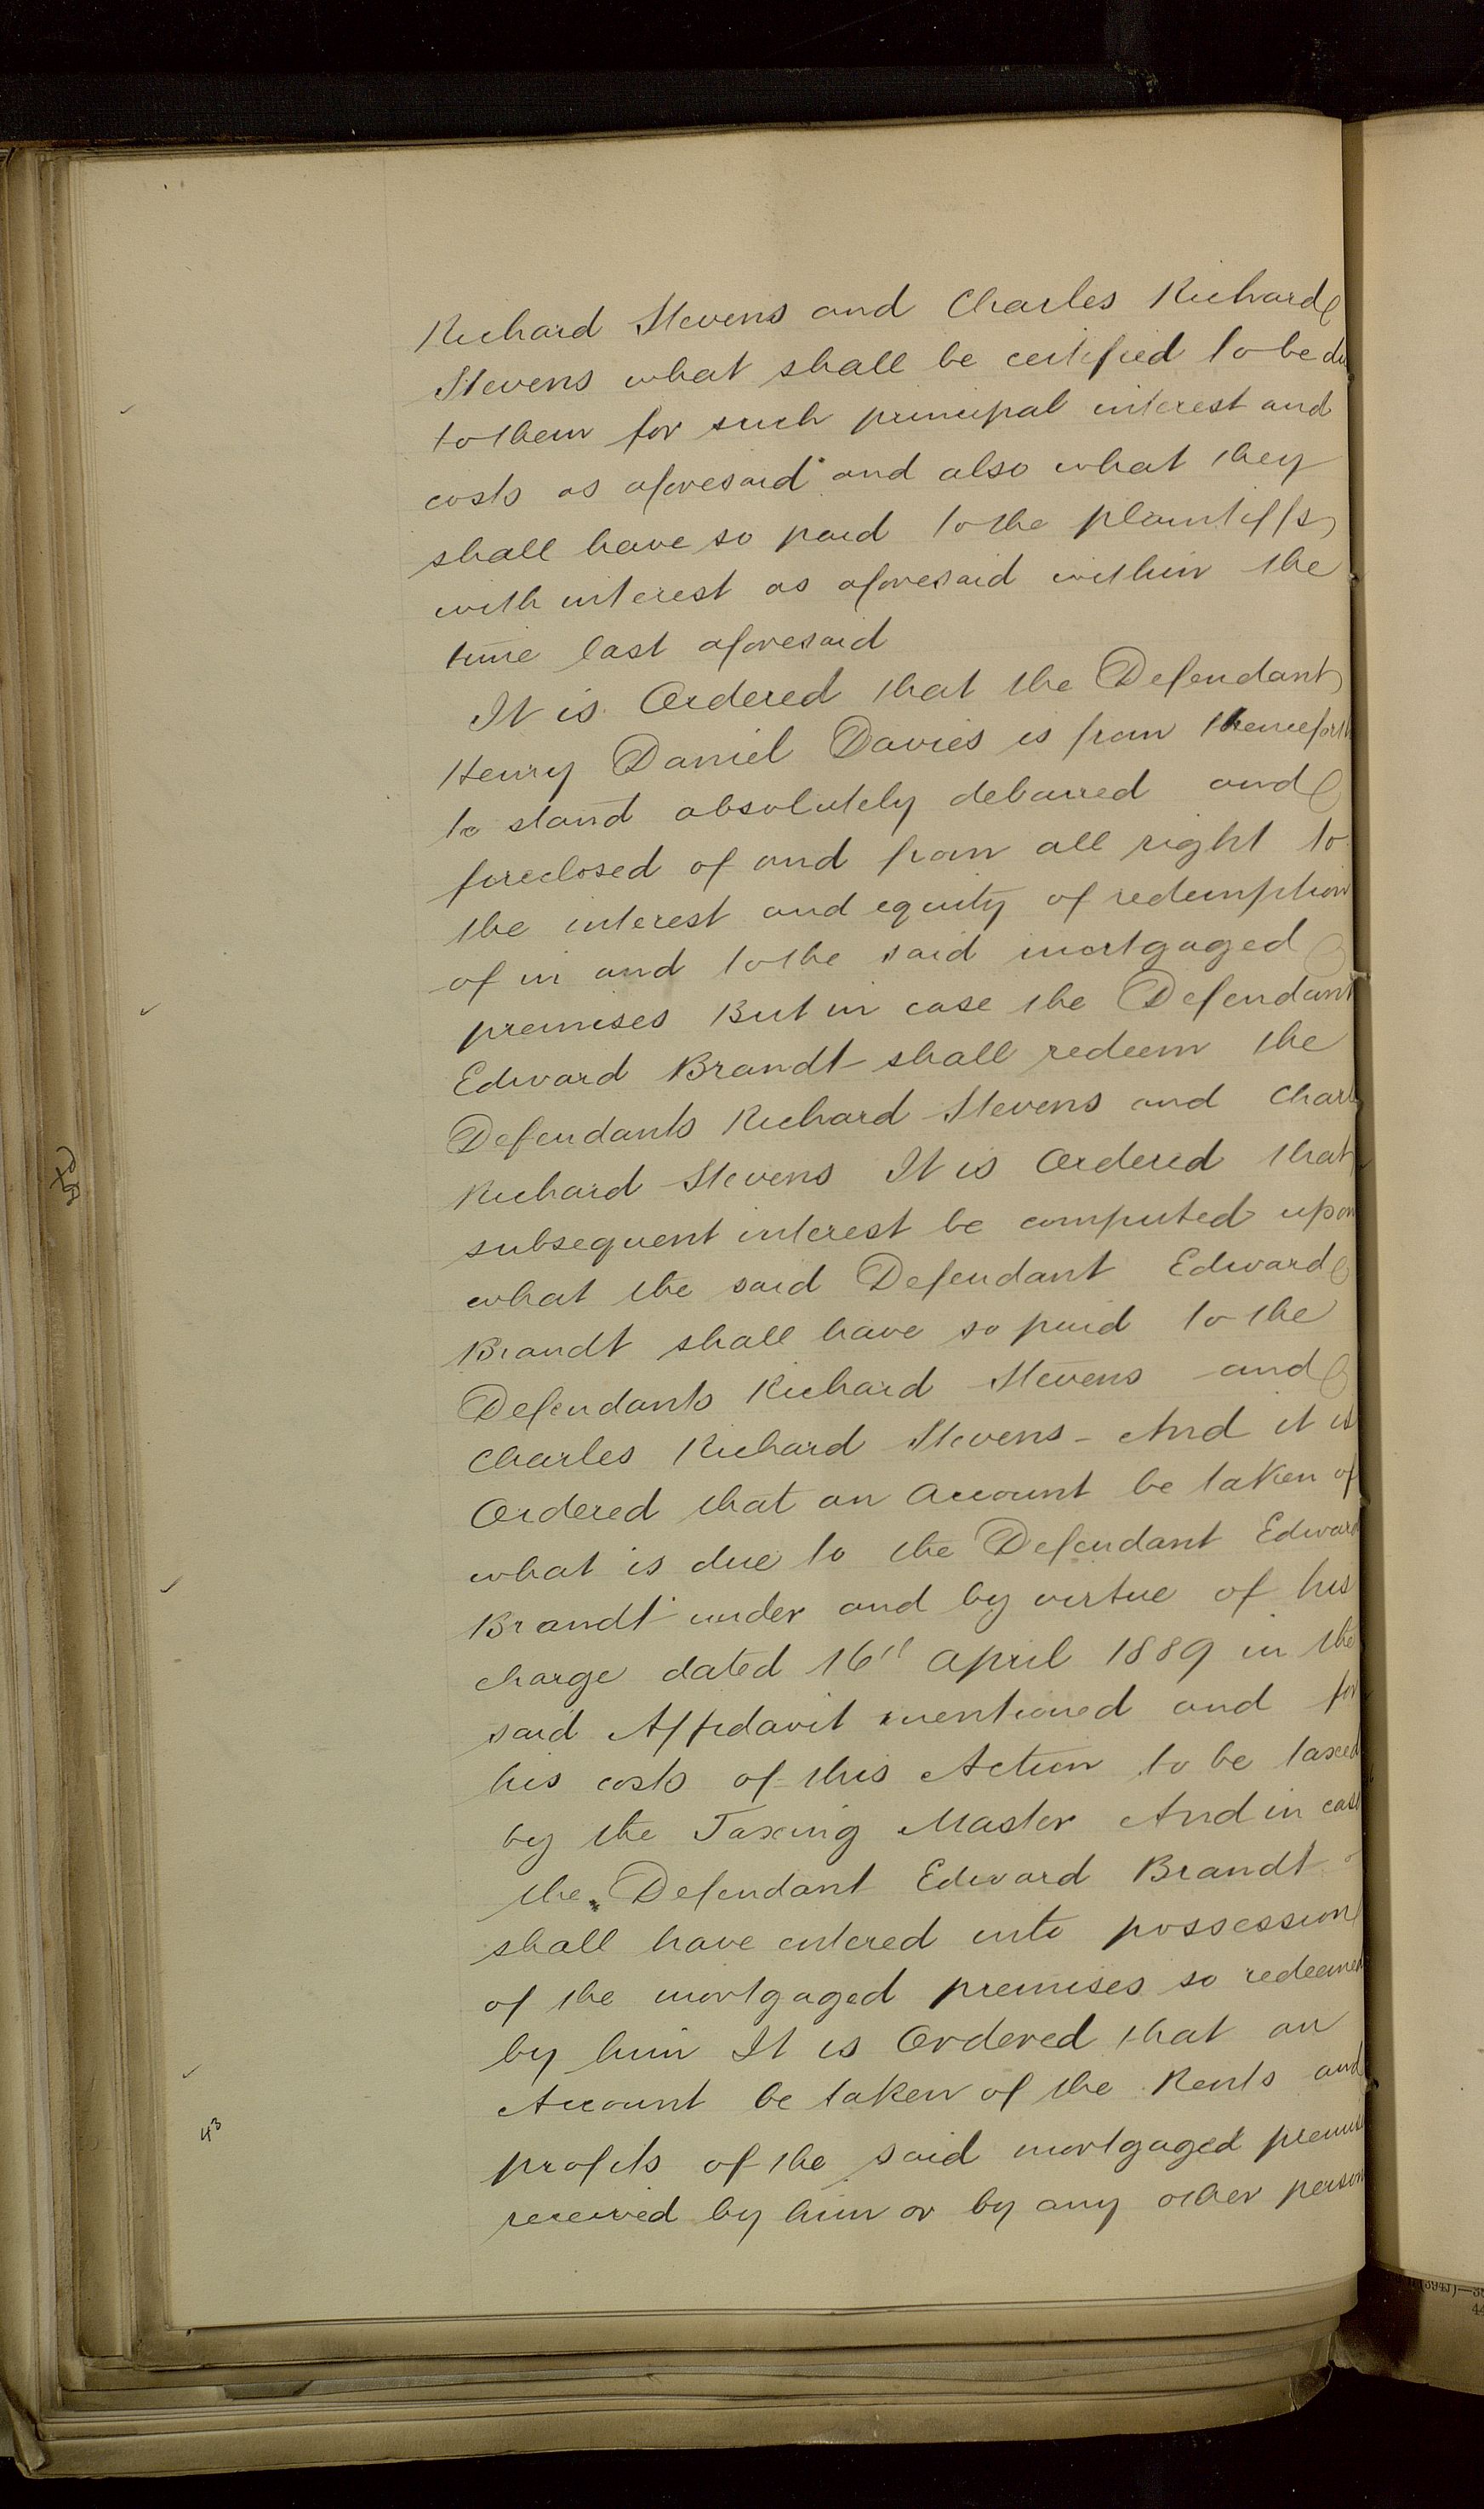 Richard Stevens and Charles Richard
Stevens what shall be certified to be du
to them for such principal interest and
costs as aforesaid and also what they
shall have so paid to the plaintiffs
with interest as aforesaid within the
time last aforesaid
It is Ordered that the Defendant
Henry Daniel Davies is from thenceforth
to stand absolutely debarred and
foreclosed of and from all right to
the interest and equity of redemption
of in and to the said mortgaged
premises But in case the Defendant
Edward Brandt shall redeem the
Defendants Richard Stevens and Charl
Richard Stevens It is Ordered that
subsequent interest be computed upon
what the said Defendant Edward
Brandt shall have so paid to the
Defendants Richard Stevens and
Charles Richard Stevens - And it is
Ordered that an account be taken of
what is due to the Defendant Edward
Brandt under and by virtue of his
charge dated 16" April 1889 in the
said Affidavit mentioned and for
his costs of this Action to be taxed
by the Taxing Master And in case
the Defendant Edward Brandt
shall have entered into possession
of the mortgaged premises so redeemed
by him It is Ordered that an
Account be taken of the Rents and
43
profits of the said mortgaged premis
received by him or by any other person